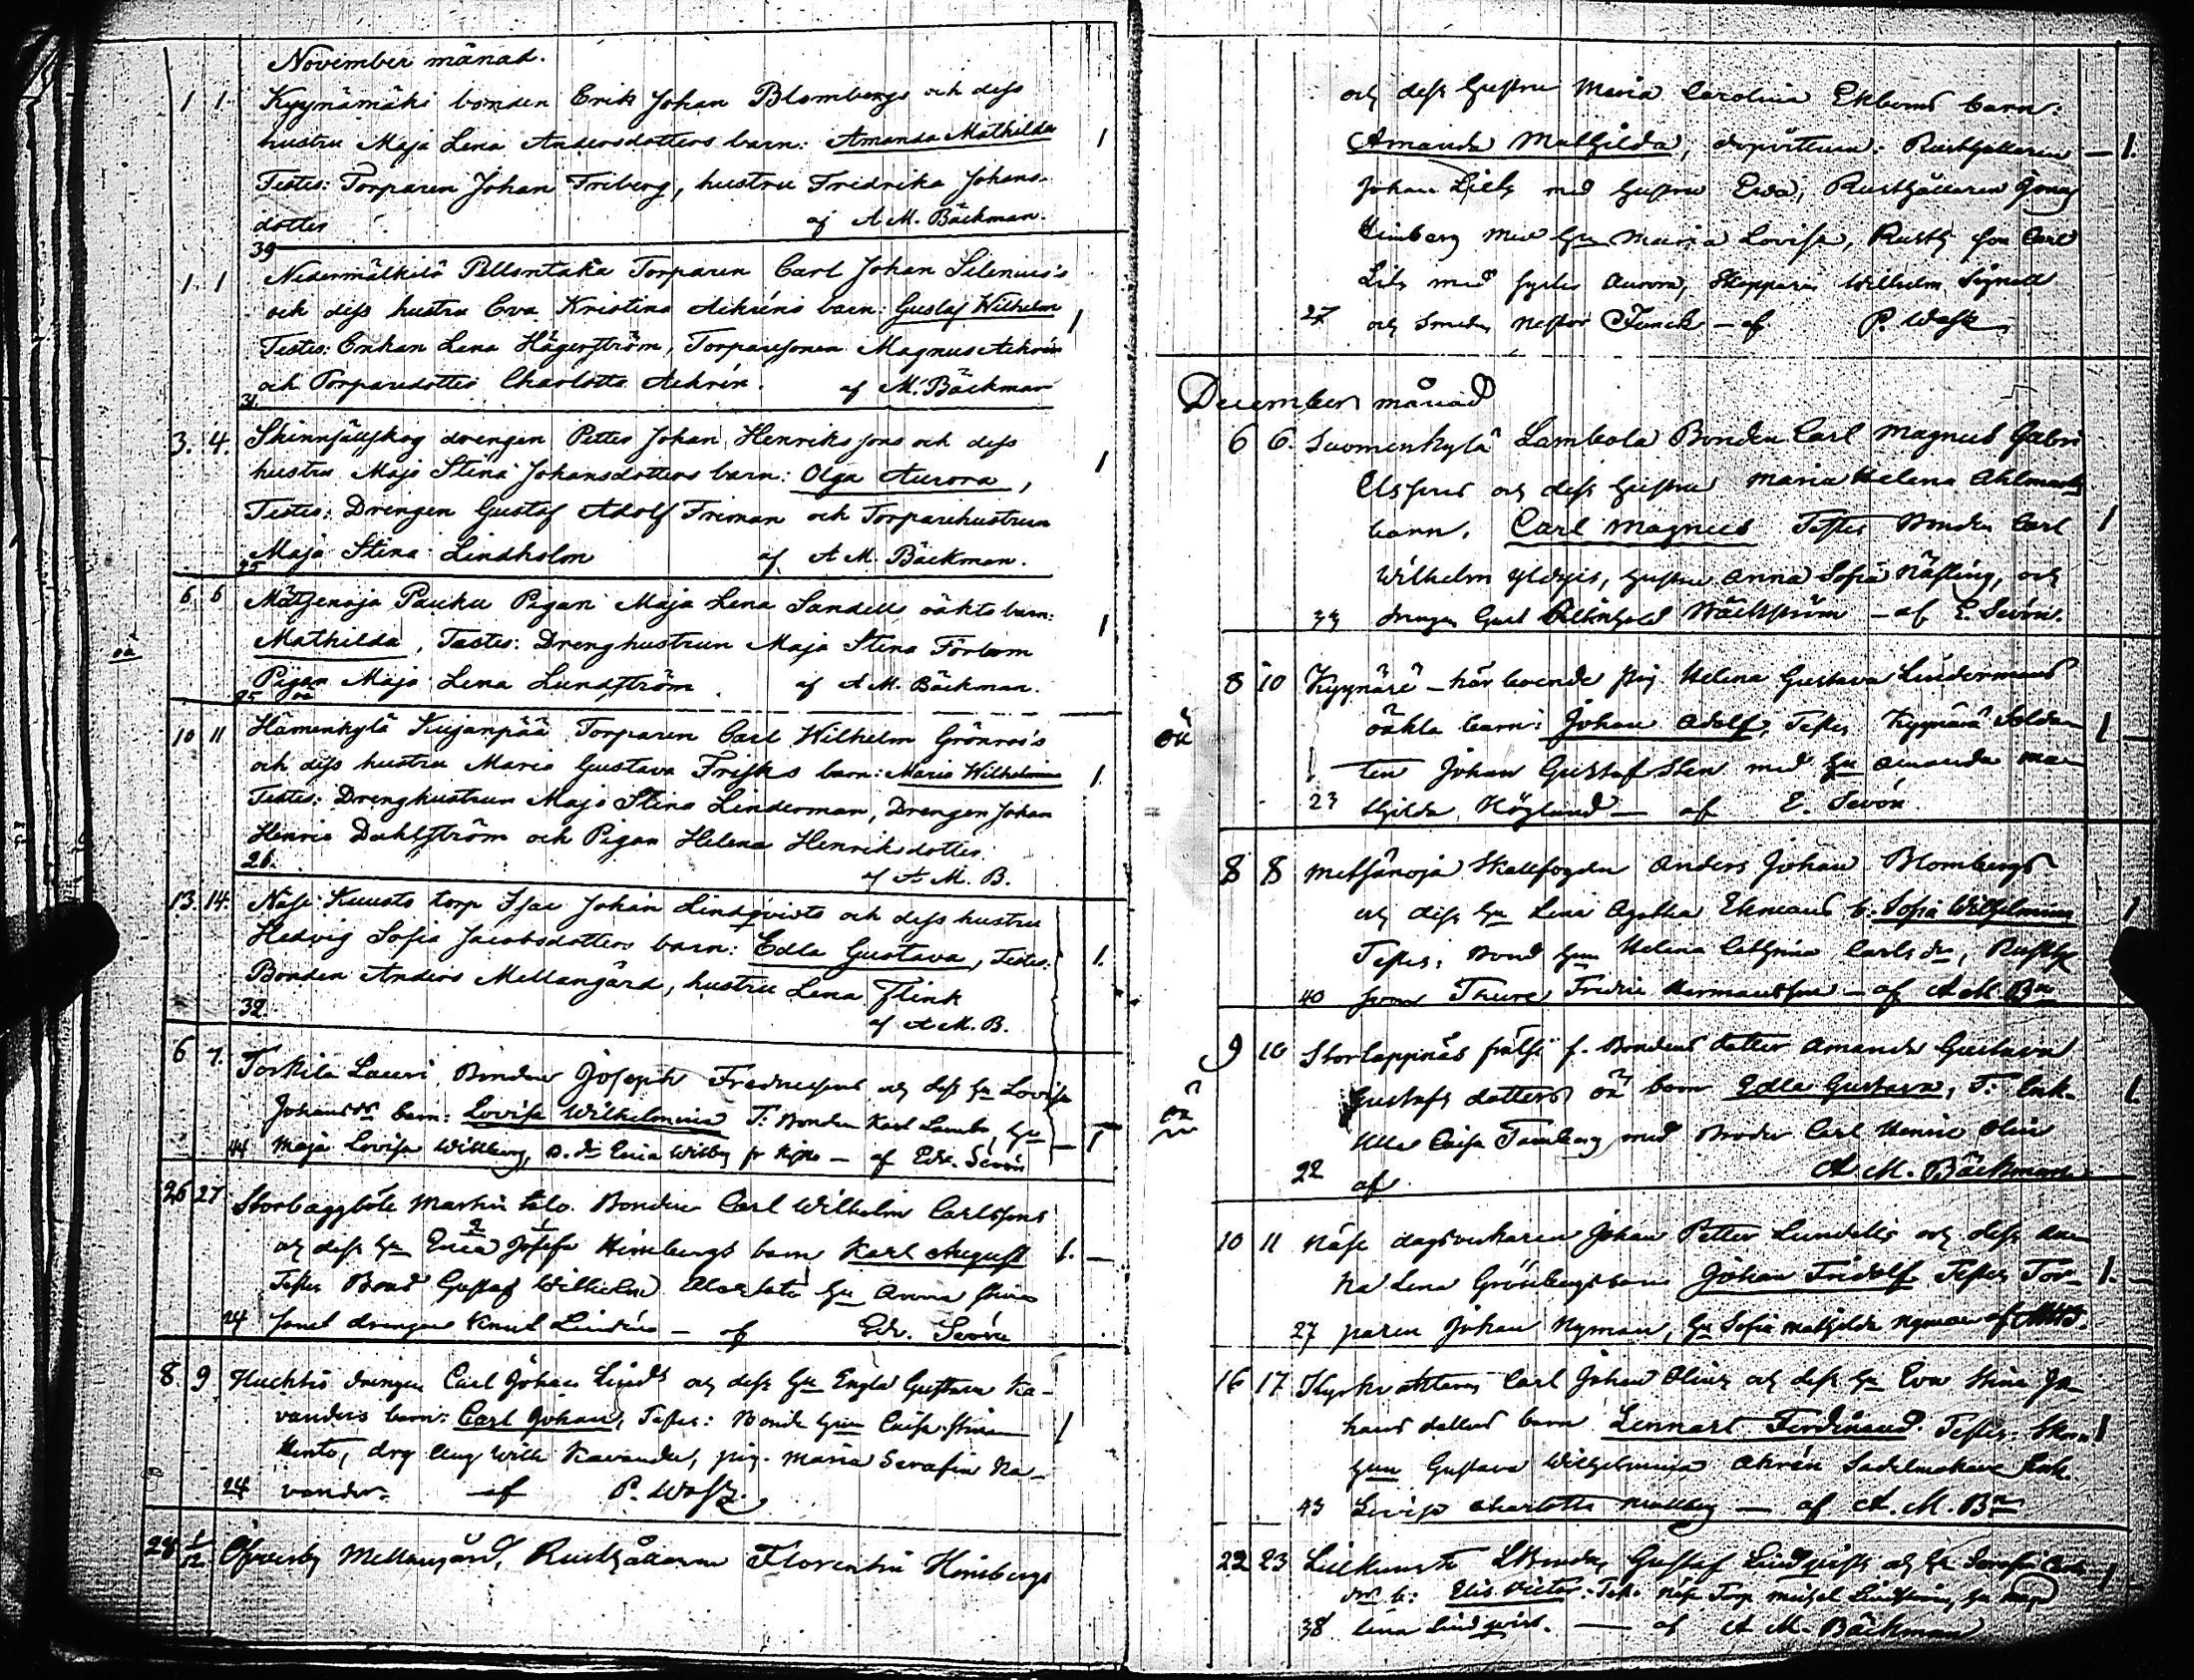 November månad.
1 1. Kyynämäki bonden Erik Johan Blombergs och dess
hustru Maja Lena Andersdotters barn: Amanda Mathilda 1
Testes: Torparen Johan Friberg, hustru Fredrika Johans-
dotter af A M. Bäckman.
39
1. 1 Nedermälkilä Torparen Carl Johan Silenius's
och dess hustru Eva Kristina Aehréns barn: Gustaf Wilhelm 1
Testes: Enkan Lena Hägerström, Torparesonen Magnus Aehrén
och Torparedotter Charlotta Aehrén. af M. Bäckman
31.
3. 4. Skinnjällskog drengen Petter Johan Henrikssons och dess
hustru Maja Stina Johansdotters barn: Olga Aurora, 1
Testes: Drengen Gustaf Adolf Friman och Torparehustrun
Maja Stina Lindholm af A M. Bäckman.
25
6 6 Mätjenoja Pauku Pigan Maja Lena Sandells oäkta barn:
oä Mathilda, Testes: Drenghustrun Maja Stina Förbom 1
Pigan Maja Lena Lundström. af A M. Bäckman.
25 oä
10 11 Hämenkylä Kujanpää Torparen Carl Wilhelm Grönroos's
och dess hustru Maria Gustava Frisks barn: Maria Wilhelmina 1.
Testes: Drenghustrun Maja Stina Linderman, Drengen Johan
Henric Dahlström och Pigan Helena Henriksdotter.
26. af A M. B.
13. 14. Näse Kuusto torp Isac Johan Lindqvists och dess hustru
Hedvig Sofia Jacobsdotters barn: Edla Gustava, Testes: 1.
Bonden Anders Mellangård, hustru Lena Flink
32. af A M. B.
6 7. Torkila Lauri Bonden Joseph Fredricssons och dess Hu Lovisa
Johansdr barn: Lovisa Wilhelmina T. Bonden Karl Lambo, Hu 1
44 Maja Lovisa Willberg, af Edv. Sevón
26 27 Storbaggböle Martin talo. Bonden Carl Wilhelm Carlssons
och dess Hu Erica Josefa Himbergs barn Karl August 1.
Testes Bond Gustaf Wilhelm Hu Anna Stina
24 samt drengen Knut Lindén — af Edv. Sevón
8. 9 Huchtis drengen Carl Johan Linds och dess Hu Engla Gustava Ka-
vanders barn: Carl Johan, Testes: Bonde Hun Caisa Stina 1
drg Aug Wilh Kavander, pig. Maria Serafia Ka-
24 vander. af P. Wasz.
28 1/12 Öfverby Mellangård, Rusthållaren Florentin Himbergs
och dess hustru Maria Carolina Ekboms barn:
Amanda Mathilda, dopvittnen: Rusthållaren — 1.
Johan Lilj med hustru Eva, Rusthållaren Jonas
Himberg med Hu Maria Lovisa, Rusth son Carl
Lilj med syster Aurora, Skepparen Wilhelm Signell
27 och Smeden Nestor Funck — af P. Wasz
December månad
6 6. Suomenkylä Lambola Bonden Carl Magnus Gabri
elssons och dess hustru Maria Helena Ahlmarks
barn. Carl Magnus Testes Bonden Carl 1
Wilhelm hustru Anna Sofia Näsling, och
33 drengen Gust Wäckström — af E. Sevón.
8 10 Kyynärä — här boende pig. Helena Gustava Lindermans
oä oäkta barn: Johan Adolf, Testes Kyynärä Solda- 1
ten Johan Gustaf Sten med Hu Amanda Ma-
23 thilda Höglund — af E. Sevón.
8 8 Metsänoja Skallfogden Anders Johan Blombergs
och dess Hu Lena Agatha Ekmans b. Sofia Wilhelmina 1
Testes, Bond Hun Helena Cathrina Carlsdr, Rusth
40 sonen Thure Fredric Hermansson — af A M. Bn
9 10 Storlappnäs frälse f. Bondens dotter Amanda Gustava
oä Gustafs dotters oä barn Edla Gustava, T: Enk- 1.
Ulla Caisa Tamberg med Broder Carl Henric Olin
22 af A M. Bäckman
10 11 Näse dagsverkaren Johan Petter Lundells och dess An-
na Lena Grönbergs barn Johan Fridolf Testes Tor- 1.
27 paren Johan Nyman, Hu Sofia Mathilda Nyman af AMB.
16 17 Kyrkvaktaren Carl Johan Olins och dess Hu Eva Stina Jo-
hans dotters barn Lennart Ferdinand. Testes: 1
Hun Gustava Wilhelmina Ahrén Sadelmakare Enk
43 Lovisa Charlotta — af A. M. Bn
22 23 Lillkuusto Bonden Gustaf Lindqvists och Hu Serafia Carls 1
dr b: Elis Victor. Tes. Näse Torp Michel Lindström, Hu Maja
38 Lena Lindqvist. — af A M. Bäckman